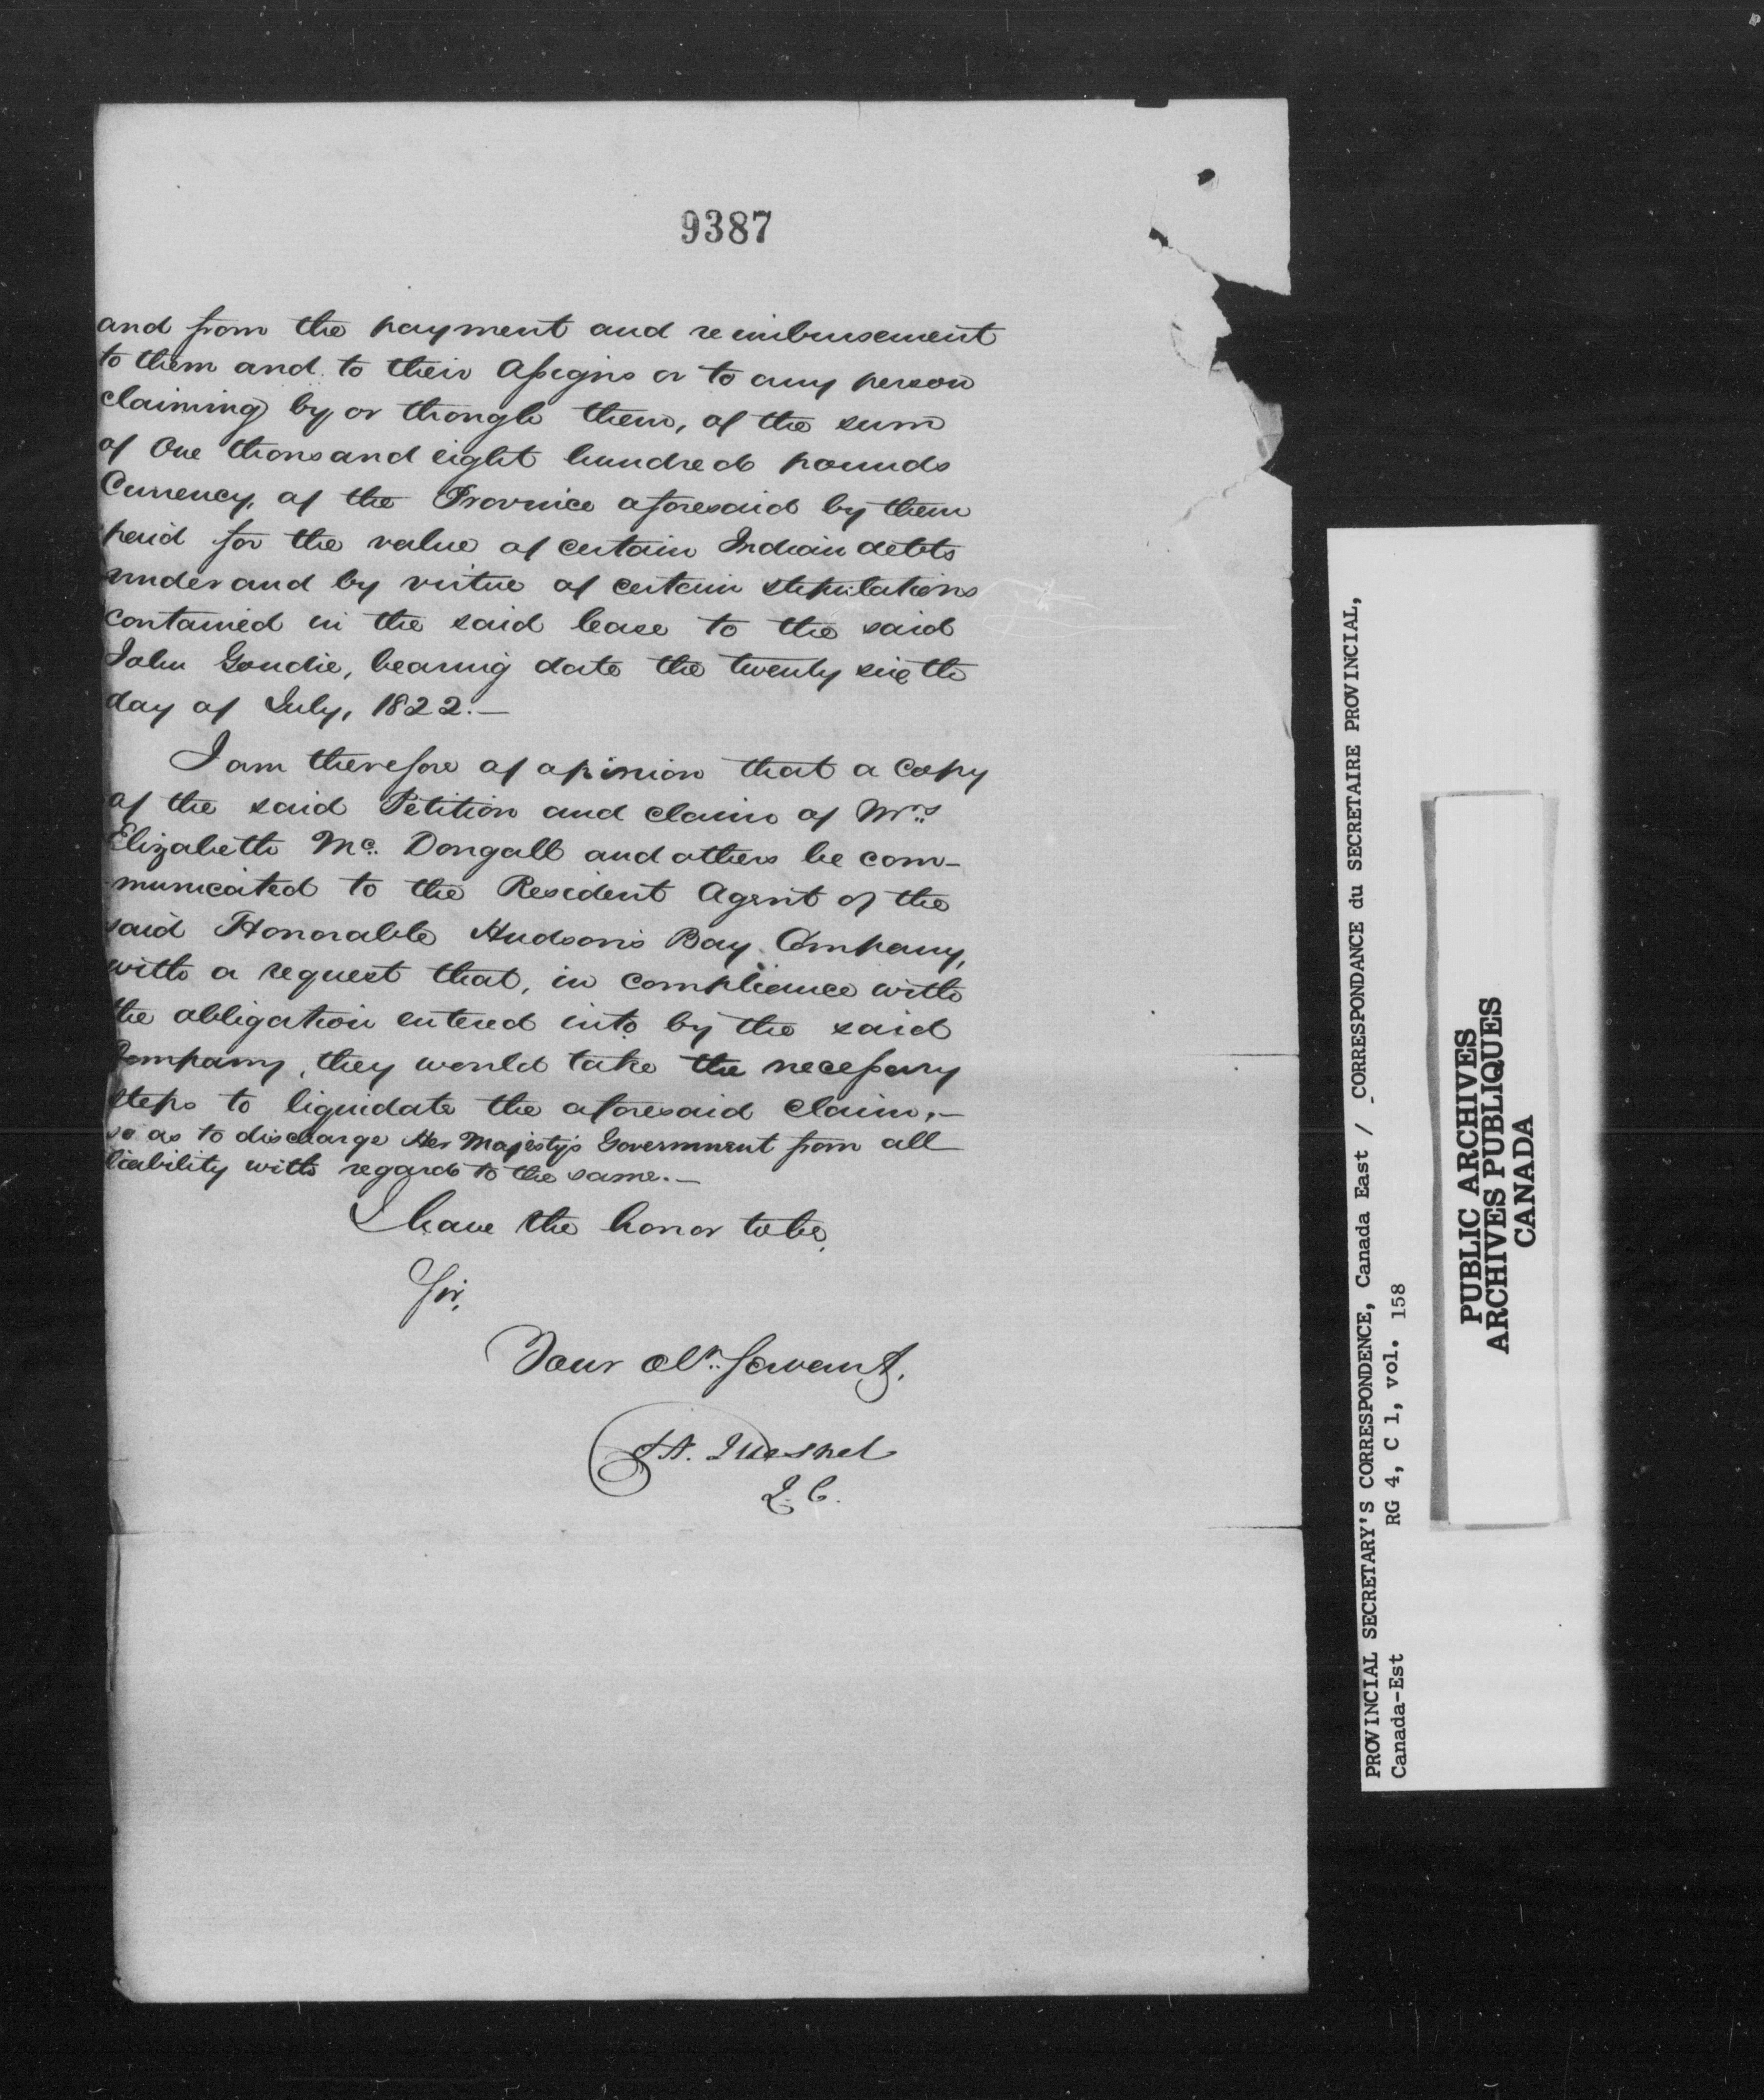 9387
and from the payment and reimbursement
to them and to their Assigns or to any person
claiming by or through them, of the sum
of One thousand eight hundred pounds
Currency, of the Province aforesaid by them
paid for the value of certain Indian debts
under and by virtue of certain stipulations
contained in the said lease to the said
John Goudie, bearing date the twenty sixth
day of July, 1822.—
I am therefore of opinion that a copy
of the said Petition and claim of Mrs
Elizabeth Mc. Dougall and others be com-
municated to the Resident Agent of the
said Honorable Hudson's Bay Company,
with a request that, in compliance with
the obligation entered into by the said
Company, they would take the necessary
steps to liquidate the aforesaid claim,—
so as to discharge Her Majesty's Government from all
liability with regard to the same.—
I have the honor to be,
Sir,
Your obt. Servant,
Quesnel
Q. C.
PROVINCIAL SECRETARY'S CORRESPONDENCE, Canada East / CORRESPONDANCE du SECRETAIRE PROVINCIAL,
Canada-Est RG 4, C 1, vol. 158
PUBLIC ARCHIVES
ARCHIVES PUBLIQUES
CANADA